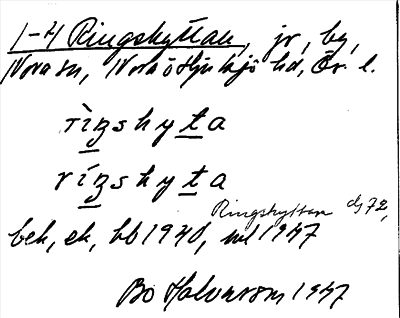 1-4 Ringshyttan, jr, by,
Nora sn, Nora o Hjulsjö hd, Ör. l.
rìŋshyta
ríŋshyta
Ringshyttan dj 72,
bek, ek, hb 1940, ml 1947
Bo Halvarson 1947